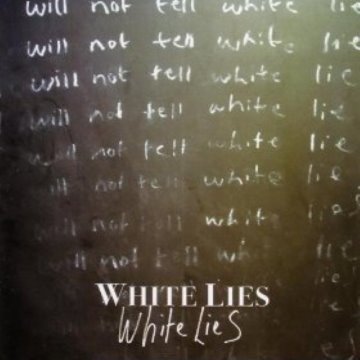 will not tell white lie
will not tell white lie
will not tell white lie
will not tell white lie
will not tell white lie
will not tell white lie
will not tell white lies
will not tell white lie
WHITE LIES
White Lies